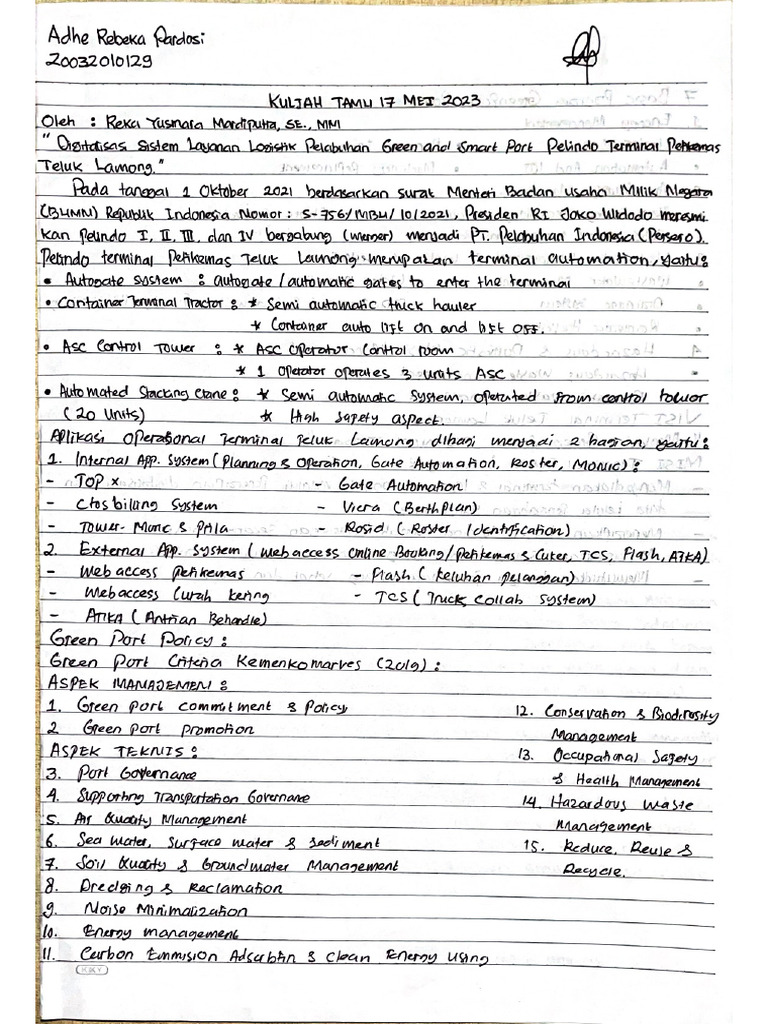 Adhe Rebeka Pardosi
20032010129
KULIAH TAMU 17 MEI 2023
Oleh : Reka Yusmara Mardiputra, SE., MM
"Digitalisasi Sistem Layanan Logistik Pelabuhan Green and Smart Port Pelindo Terminal Petikemas
Teluk Lamong."
Pada tanggal 1 Oktober 2021 berdasarkan surat Menteri Badan usaha Milik Negara
(BUMN) Republik Indonesia Nomor : S-756/MBU/10/2021, Presiden RI Joko Widodo meresmi
kan Pelindo I, II, III, dan IV bergabung (merger) menjadi PT. Pelabuhan Indonesia (Persero).
Pelindo terminal Petikemas Teluk Lamong merupakan terminal automation, yaitu :
• Autogate system : autogate/automatic gates to enter the terminal
• Container Terminal Tractor : * Semi automatic truck hauler
* Container auto lift on and lift OFF.
• ASC Control Tower : * ASC Operator Control room
* 1 Operator operates 3 units ASC
• Automated Stacking Crane : * Semi automatic system, operated From control tower
(20 Units) * High Safety aspect.
Aplikasi Operasional Terminal Teluk Lamong dibagi menjadi 2 bagian, yaitu :
1. Internal App. System (Planning & Operation, Gate Automation, Roster, Monic) :
- TOP X - Gate Automation
- Ctos billing System - Viera (Berthplan)
- Tower- Monic & PAla - Rosid (Roster Identification)
2. External App. System (Web access Online Booking/Petikemas & Cuker, TCS, Flash, ATIKA)
- Web access Petikemas - Flash (Keluhan pelanggan)
- Web access Curah kering - TCS (Truck Collab System)
- ATIKA (Antrian Behandle)
Green Port Policy :
Green Port Criteria Kemenkomarves (2019) :
ASPEK MANAGEMEN :
1. Green port commitment & Policy
2 Green port promotion
ASPEK TEKNIS :
3. Port Governance
4. Supporting Transportation Governance
5. Air Quality Management
6. Sea water, Surface water & Sediment
7. Soil Quality & Groundwater Management
8. Dredging & Reclamation
9. Noise Minimalization
10. Energy management
11. Carbon Emmision Adsorbtin & Clean Energy Using
12. Conservation & Biodirosity
Management
13. Occupational Safety
& Health Management
14. Hazardous Waste
Management
15. Reduce, Reuse &
Recycle.
KKY